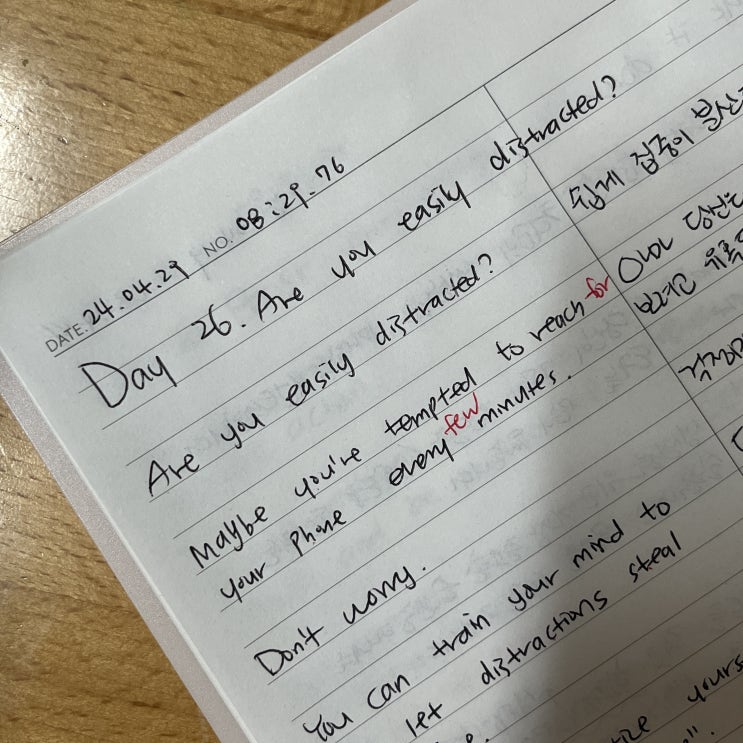 DATE. 24.04.29 NO. 08:29.76
Day 26. Are you easily distracted?
Are you easily distracted?
Maybe you're tempted to reach for
your phone every few minutes.
Don't worry.
You can train your mind to
let distractions steal
yours
쉽게 집중이
아마 당신은